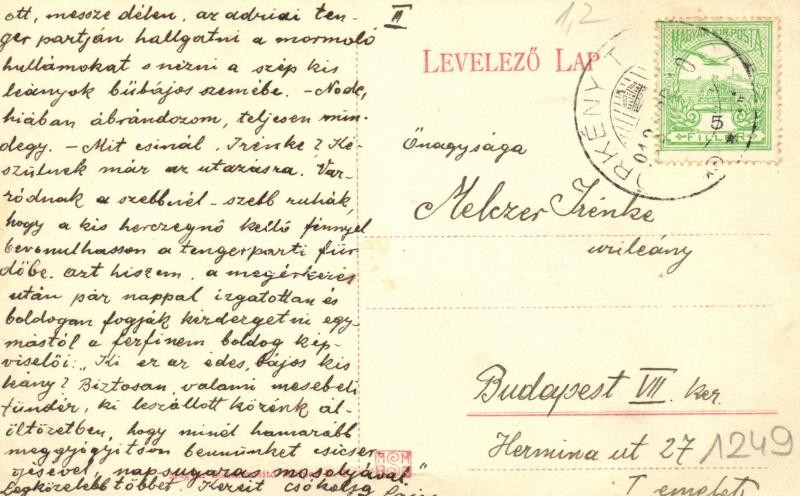 ott, messze délen, az adriai ten-
ger partján hallgatni a mormoló
hullámokat s nézni a szép kis
leányok bűbájos szemébe. - No de,
hiában ábrándozom, teljesen min-
degy. - Mit csinál, Irénke? Ké-
szülnek már az utazásra. Var-
ródnak a szebbnél-szebb ruhák,
hogy a kis herczegnő kellő fénnyel
bevonulhasson a tengerparti für-
dőbe. Azt hiszem, a megérkezés
után pár nappal izgatottan és
boldogan fogják kérdezgetni egy-
mástól a férfinem boldog kép-
viselői: „Ki ez az édes, bájos kis
leány? Biztosan valami mesebeli
tündér, ki leszállott közénk ál-
öltözetben, hogy minél hamarább
meggyógyitson bennünket csicser-
gésével, napsugaras mosolyával"
Legközelebb többet. Kezeit csókolja
II
1,2
LEVELEZŐ LAP
MAGYAR KIR. POSTA
5
FILLÉR
ÖRKÉNY
Önagysága
Melczer Irénke
urileány
Budapest VII. ker.
Hermina ut 27
1249
I. emelet